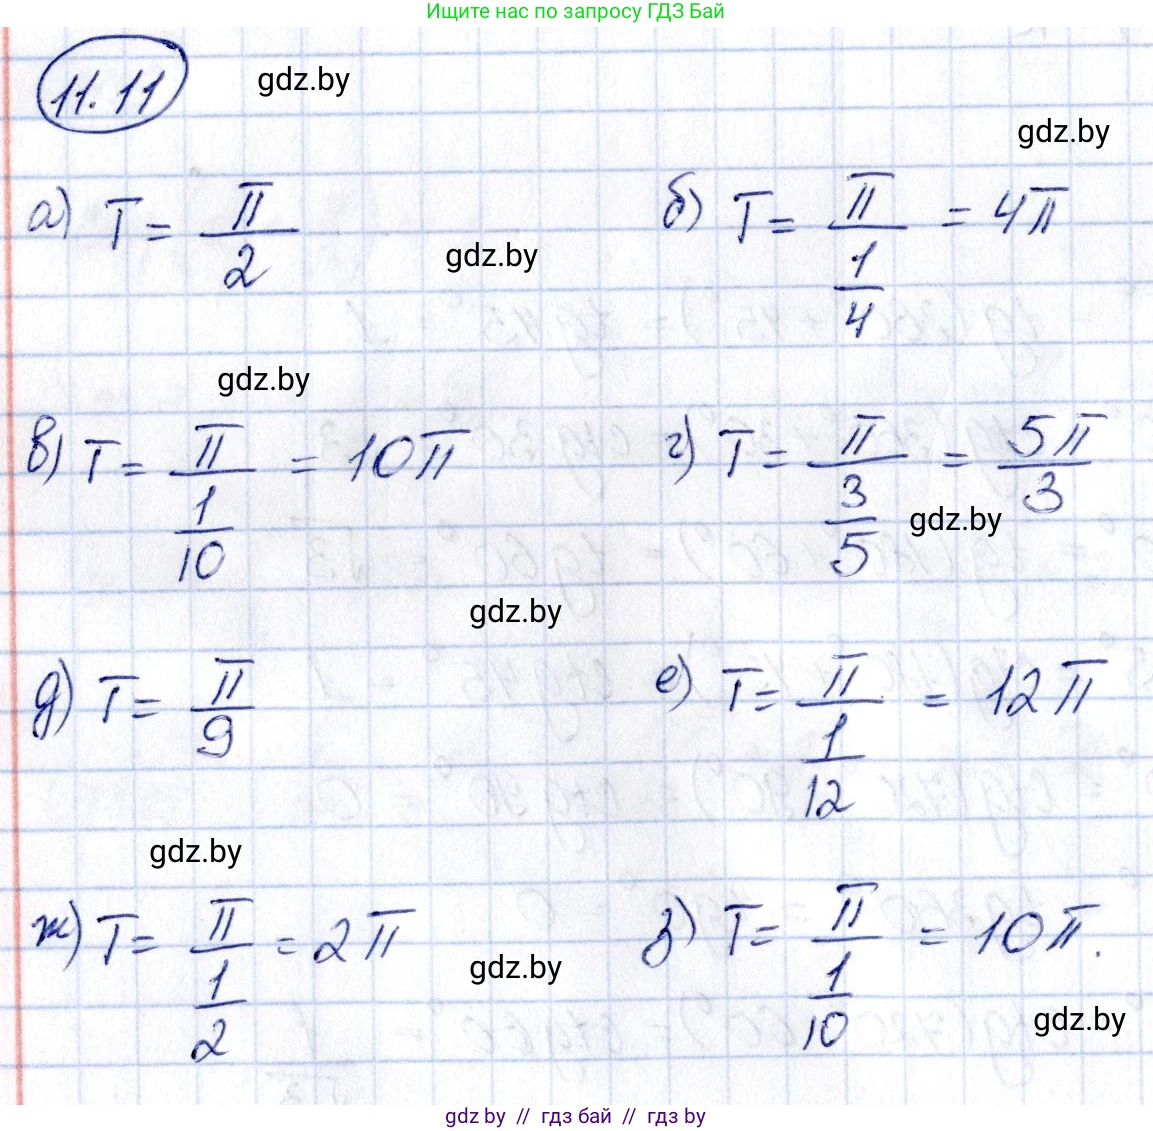 Ищите нас по запросу ГДЗ Бай
11.11
gdz.by
gdz.by
а) T = π/2
б) T = π/(1/4) = 4π
gdz.by
gdz.by
в) T = π/(1/10) = 10π
г) T = π/(3/5) = 5π/3
gdz.by
gdz.by
д) T = π/9
е) T = π/(1/12) = 12π
gdz.by
ж) T = π/(1/2) = 2π
з) T = π/(1/10) = 10π.
gdz.by
gdz.by
gdz.by // гдз бай // гдз by